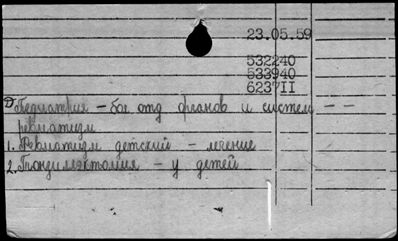 23.05.59
532240
533940
6237II
Педиатрия – бол отд органов и систем – –
ревматизм
1. Ревматизм детский – лечение
2. Тонзилэктомия – у детей